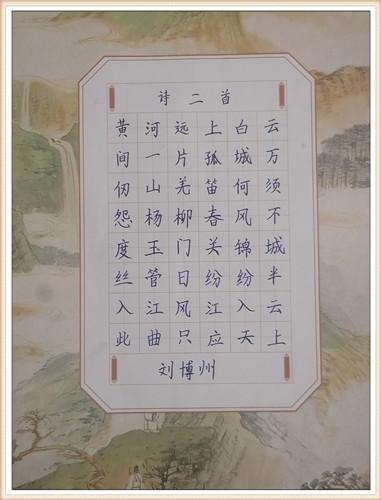 诗二首
黄河远上白云
间一片孤城万
仞山羌笛何须
怨杨柳春风不
度玉门关锦城
丝管日纷纷半
入江风江入云
此曲只应天上
刘博州